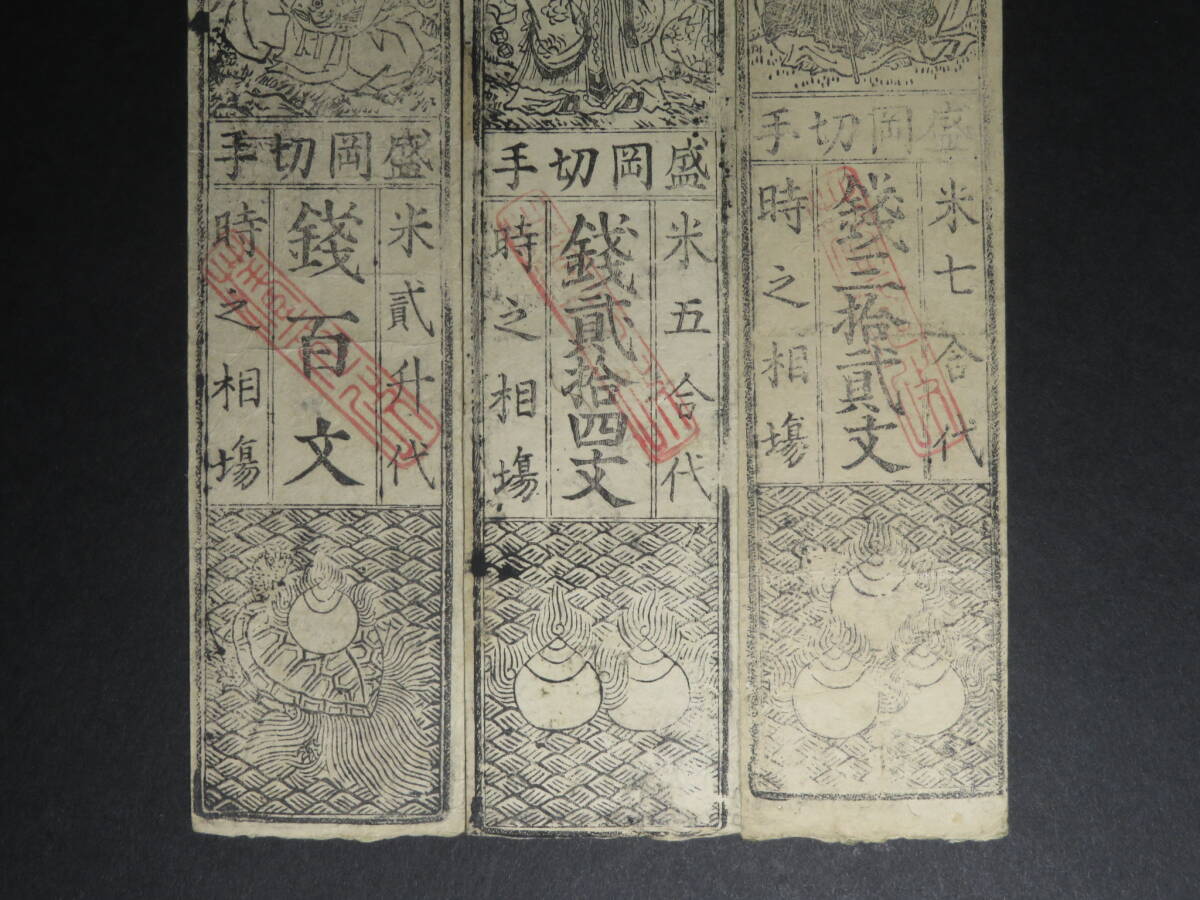 盛岡切手
米七合代
錢三拾貳文
時之相場
盛岡切手
米五合代
錢貳拾四文
時之相場
盛岡切手
米貳升代
錢百文
時之相場